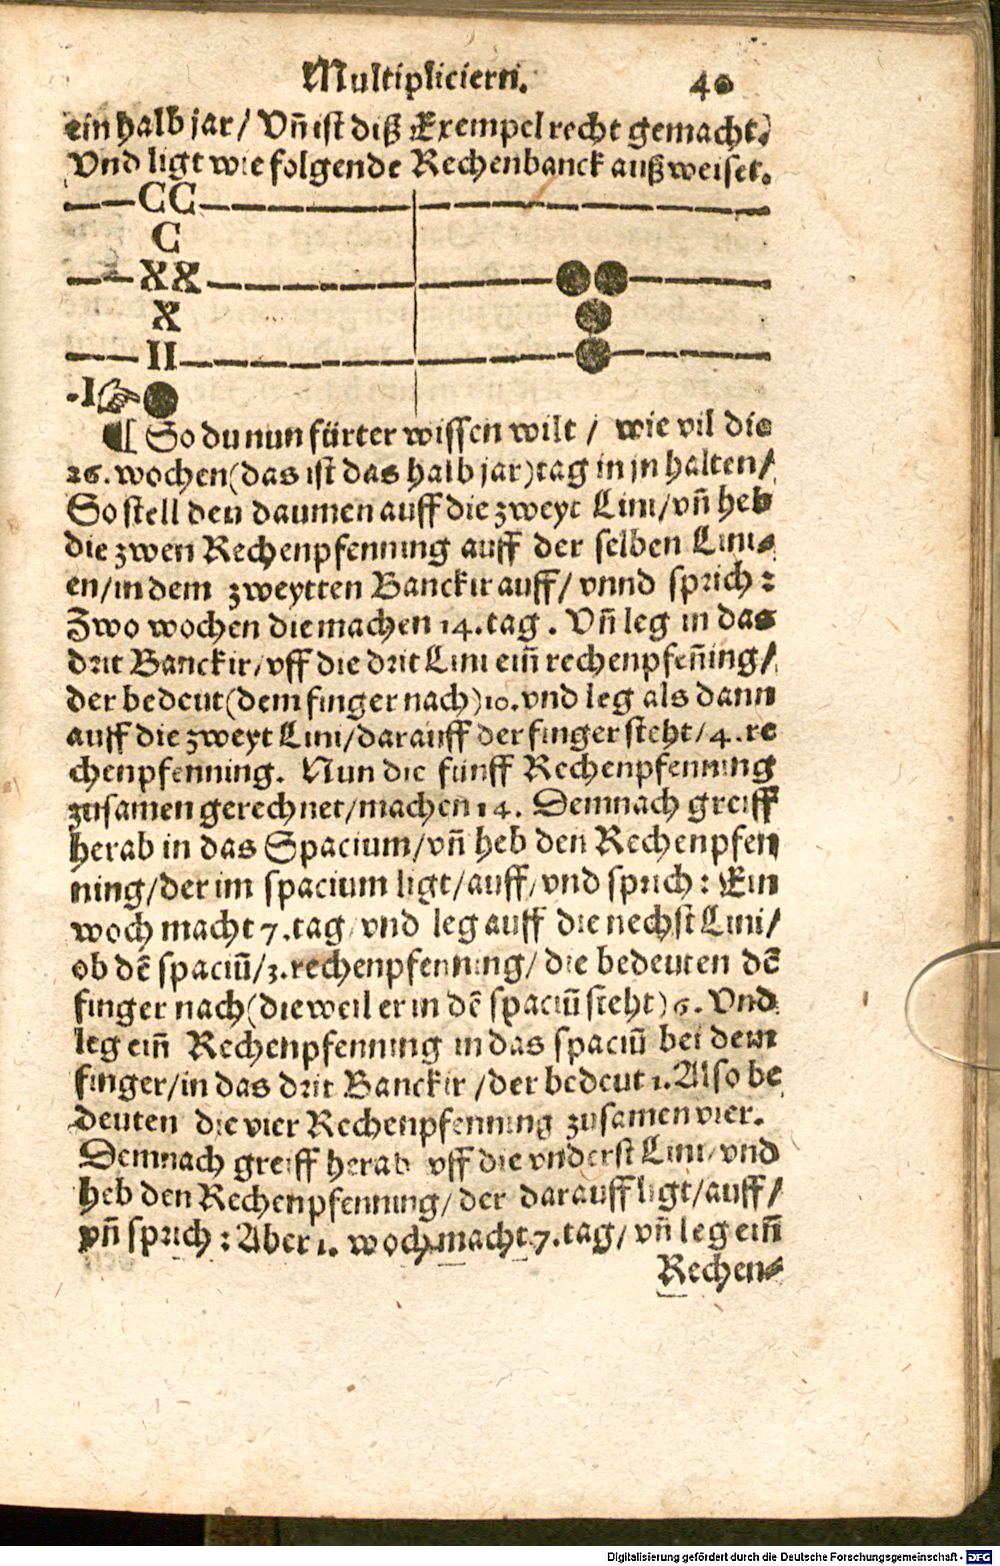 Multipliciern. 40
ein halb jar/ Vñ ist diß Exempel recht gemacht.
Vnd ligt wie folgende Rechenbanck außweiset.
CC
C
XX
X
II
.I
¶ So du nun fürter wissen wilt / wie vil die
26. wochen(das ist das halb jar)tag in jn halten/
So stell den daumen auff die zweyt Lini/vñ heb
die zwen Rechenpfenning auff der selben Lini-
en/in dem zweytten Banckir auff/ vnnd sprich:
Zwo wochen die machen 14.tag. Vñ leg in das
drit Banckir/vff die drit Lini eiñ rechenpfeñing/
der bedeut(dem finger nach)10.vnd leg als dann
auff die zweyt Lini/darauff der finger steht/4.re
chenpfenning. Nun die fünff Rechenpfenning
zusamen gerechnet/machen 14. Demnach greiff
herab in das Spacium/vñ heb den Rechenpfen
ning/der im spacium ligt/auff/vnd sprich: Ein
woch macht 7.tag/vnd leg auff die nechst Lini/
ob dē spaciū/3.rechenpfenning/die bedeuten dē
finger nach(dieweil er in dē spaciū steht)6. Vnd
leg eiñ Rechenpfenning in das spaciū bei dem
finger/in das drit Banckir/der bedeut 1.Also be
deuten die vier Rechenpfenning zusamen vier.
Demnach greiff herab vff die vnderst Lini/vnd
heb den Rechenpfenning/der darauff ligt/auff/
vñ sprich: Aber 1. woch macht 7.tag/vñ leg eiñ
Rechen-
Digitalisierung gefördert durch die Deutsche Forschungsgemeinschaft - DFG